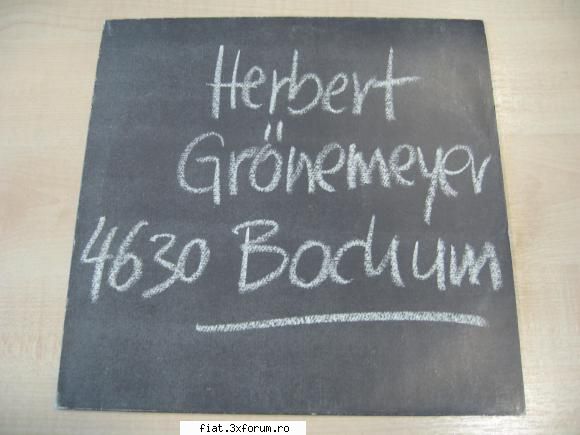 Herbert
Grönemeyer
4630 Bochum
fiat.3xforum.ro